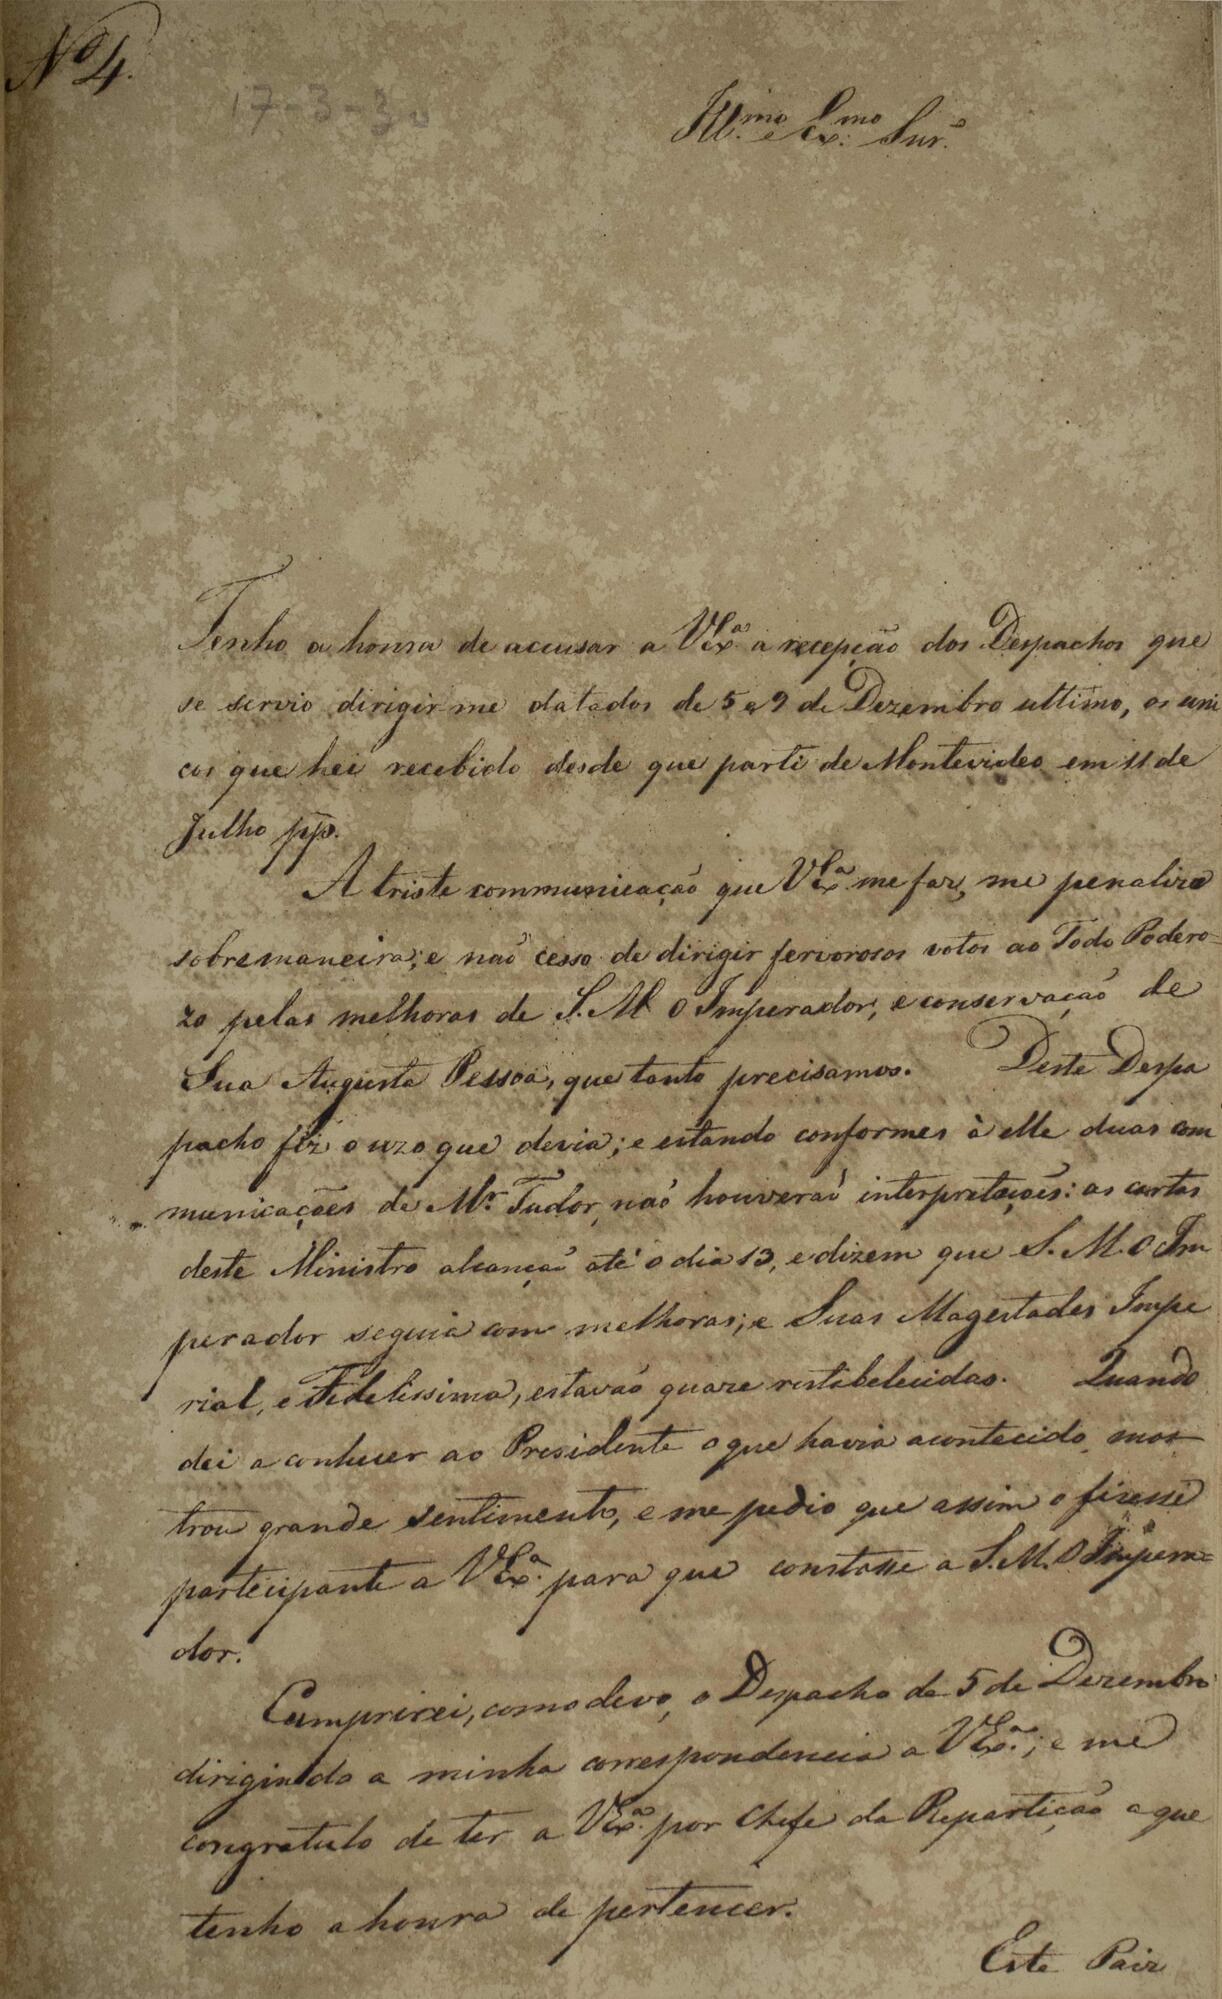 Nº 4.
17-3-30
Ill.mo e Ex.mo Snr.
Tenho a honra de accusar a VEx.ª a recepção dos Despachos que
se servio dirigir-me datados de 5 e 9 de Dezembro ultimo, os uni
cos que hei recebido desde que parti de Montevideo em 11 de
Julho pp.
A triste communicação que VEx.ª me faz, me penaliza
sobremaneira; e não cesso de dirigir fervorosos votos ao Todo Podero=
zo pelas melhoras de S. M. O Imperador, e conservação de
Sua Augusta Pessoa, que tanto precisamos. Deste Despa
pacho fiz o uzo que devia; e estando conformes à elle duas com
municações de Mr. Tudor, não houverão interpretações: as cartas
deste Ministro alcanção até o dia 13, e dizem que S. M. O Im
perador seguia com melhoras; e Suas Magestades Impe
rial, e Fidelissima, estavão quaze restabelecidas. Quando
dei a conhecer ao Presidente o que havia acontecido, mos
trou grande sentimento, e me pedio que assim o fizesse
participante a VEx.ª para que constasse a S. M. O Impera=
dor.
Cumprirei, como devo, o Despacho de 5 de Dezembro
dirigindo a minha correspondencia a VEx.ª; e me
congratulo de ter a VEx.ª por Chefe da Repartição a que
tenho a honra de pertencer.
Este Paiz